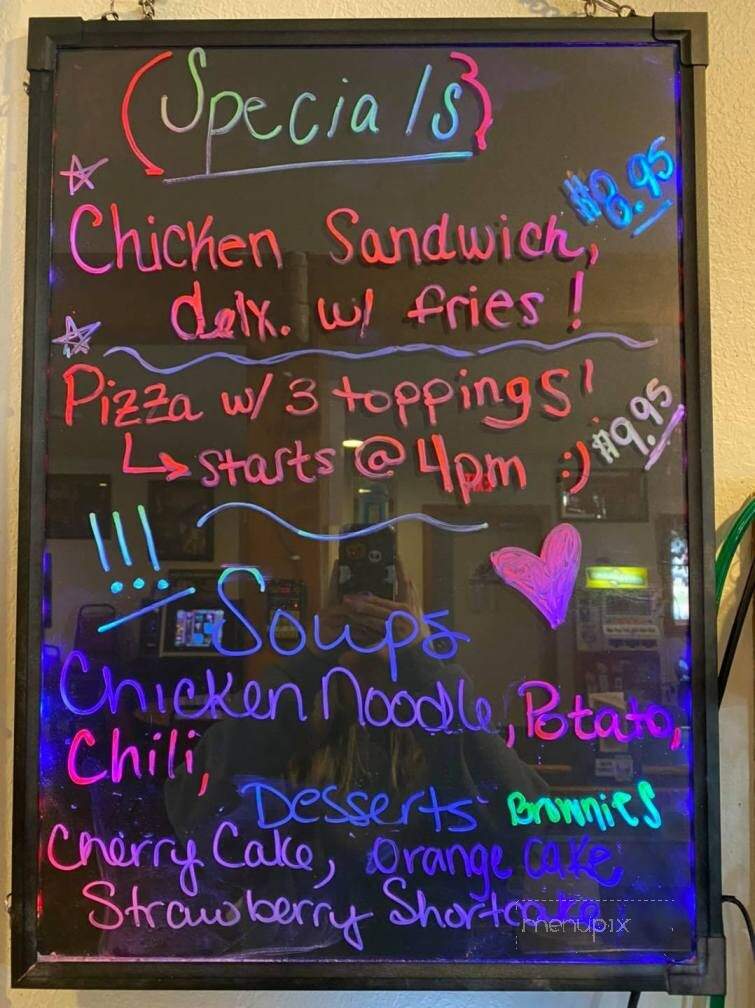 (Specials}
$8.95
Chicken Sandwich,
delx. w/ fries!
Pizza w/ 3 toppings!
↳ starts @ 4pm :)
$9.95
!!!
Soups
Chicken Noodle, Potato,
Chili,
Desserts Brownies
Cherry Cake, Orange Cake
Strawberry Shortcake
menupix